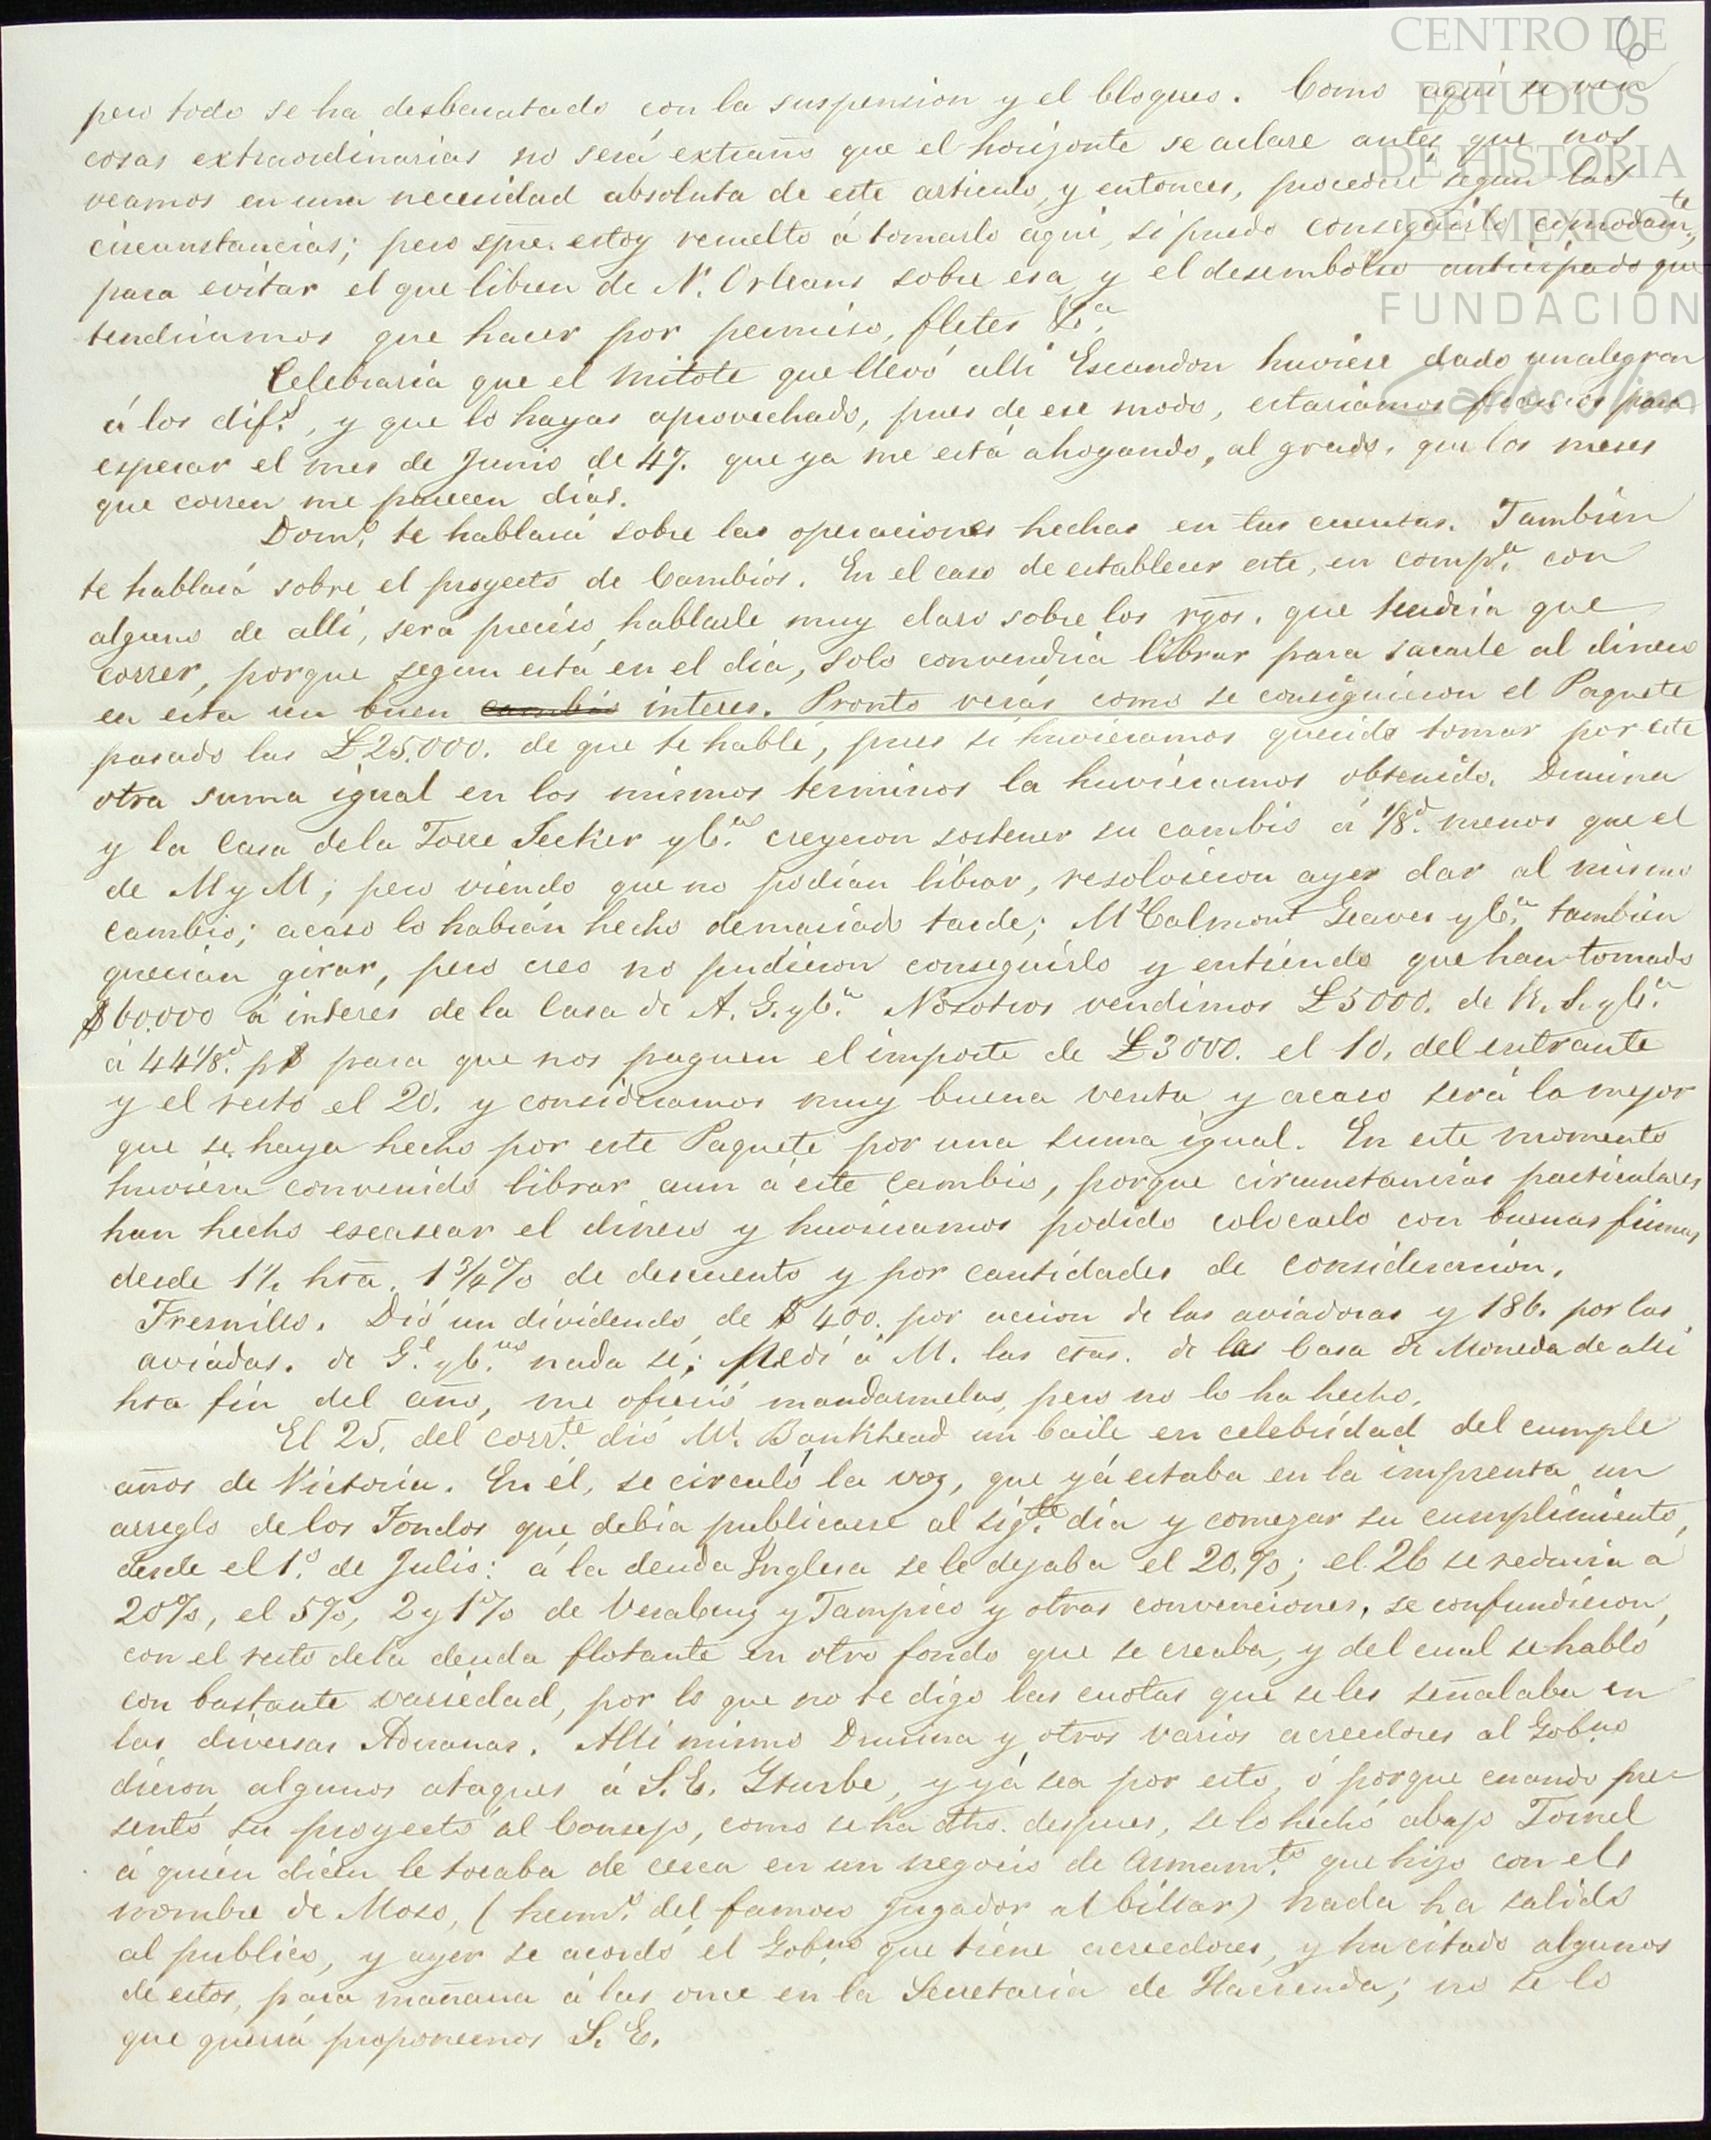 CENTRO DE
ESTUDIOS
DE HISTORIA
DE MEXICO
FUNDACIÓN
6
pero todo se ha desbaratado con la suspension y el bloqueo. Como aqui se ven
cosas extraordinarias no será extraño que el horizonte se aclare antes que nos
veamos en una necesidad absoluta de este articulo, y entonces, procederé segun las
circunstancias; pero spre. estoy resuelto á tomarlo aqui, si puedo conseguirlo comodamte.,
para evitar el que libren de N. Orleans sobre esa y el desembolso anticipado que
tendriamos que hacer por permiso, fletes &a.
Celebraria que el mitote que llevó alli Escandon huviese dado un alegron
á los difs., y que lo hayas aprovechado, pues de ese modo, estariamos francos para
esperar el mes de Junio de 47. que ya me está ahogando, al grado, que los meses
que corren me parecen dias.
Domo. te hablará sobre las operaciones hechas en tus cuentas. Tambien
te hablará sobre el proyecto de Cambios. En el caso de establecer este, en compa. con
alguno de alli, será preciso hablarle muy claro sobre los rgos. que tendria que
correr, porque segun está en el dia, solo convendria librar para sacarle al dinero
en esta un buen cambio interes. Pronto verás como se consiguieron el Paquete
pasado las £25.000. de que te hablé, pues si huvieramos querido tomar por este
otra suma igual en los mismos terminos la huvieramos obtenido. Drusina
y la Casa de la Torre Jecker y Ca. creyeron sostener su cambio á 1/8d. menos que el
de M y M; pero viendo que no podian librar, resolvieron ayer dar al mismo
cambio; acaso lo habrán hecho demasiado tarde; McCalmont Geaves y Ca. tambien
querian girar, pero creo no pudieron conseguirlo y entiendo que han tomado
$60.000 á interes de la Casa de A. G. y Ca. Nosotros vendimos £5000. de R. S. y Ca.
á 44 1/8d. p$ para que nos paguen el importe de £3000. el 10. del entrante
y el resto el 20. y consideramos muy buena venta y acaso será la mejor
que se haya hecho por este Paquete por una suma igual. En este momento
huviera convenido librar aun á este cambio, porque circunstancias particulares
han hecho escasear el dinero y huvieramos podido colocarlo con buenas firmas
desde 1½ hta. 1¾% de descuento y por cantidades de consideracion.
Fresnillo. Dió un dividendo de $400. por accion de las aviadoras y 186. por las
aviadas. de G.l y Ca. nada sé; Pedi á M. las ctas. de la Casa de Moneda de alli
hta fin del año, me ofreció mandarmelas, pero no lo ha hecho.
El 25. del corrte. dió Mr. Bankhead un baile en celebridad del cumple
años de Victoria. En él, se circuló la voz, que yá estaba en la imprenta un
arreglo de los Fondos que debia publicarse al sigte. dia y comezar su cumplimiento,
desde el 1o. de Julio: á la deuda Inglesa se le dejaba el 20.%; el 26 se reducia á
20%, el 5%, 2 y 1% de Veracruz y Tampico y otras convenciones, se confundieron,
con el resto de la deuda flotante en otro fondo que se creaba, y del cual se habló
con bastante variedad, por lo que no te digo las cuotas que se les señalaba en
las diversas Aduanas. Alli mismo Drusina y otros varios acreedores al Gobno.
dieron algunos ataques á S. E. Yturbe, y yá sea por esto, ó porque cuando pre-
sentó su proyecto al Consejo, como se ha dho. despues, se lo hechó abajo Tornel
á quien dicen le tocaba de cerca en un negocio de armamto. que hizo con el
nombre de Moso, (hermo. del famoso jugador al billar) nada ha salido
al publico, y ayer se acordó el Gobno. que tiene acreedores, y ha citado algunos
de estos, para mañana á las once en la Secretaria de Hacienda; no se lo
que querrá proponernos S. E.